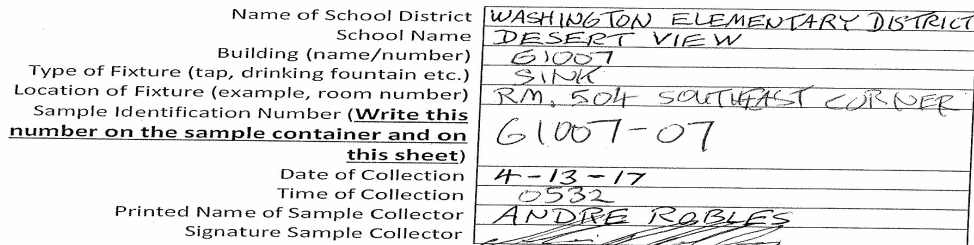 Name of School District WASHINGTON ELEMENTARY DISTRICT
School Name DESERT VIEW
Building (name/number) 61007
Type of Fixture (tap, drinking fountain etc.) SINK
Location of Fixture (example, room number) RM. 504 SOUTHEAST CORNER
Sample Identification Number (Write this
number on the sample container and on
this sheet) 61007-07
Date of Collection 4-13-17
Time of Collection 0532
Printed Name of Sample Collector ANDRE ROBLES
Signature Sample Collector